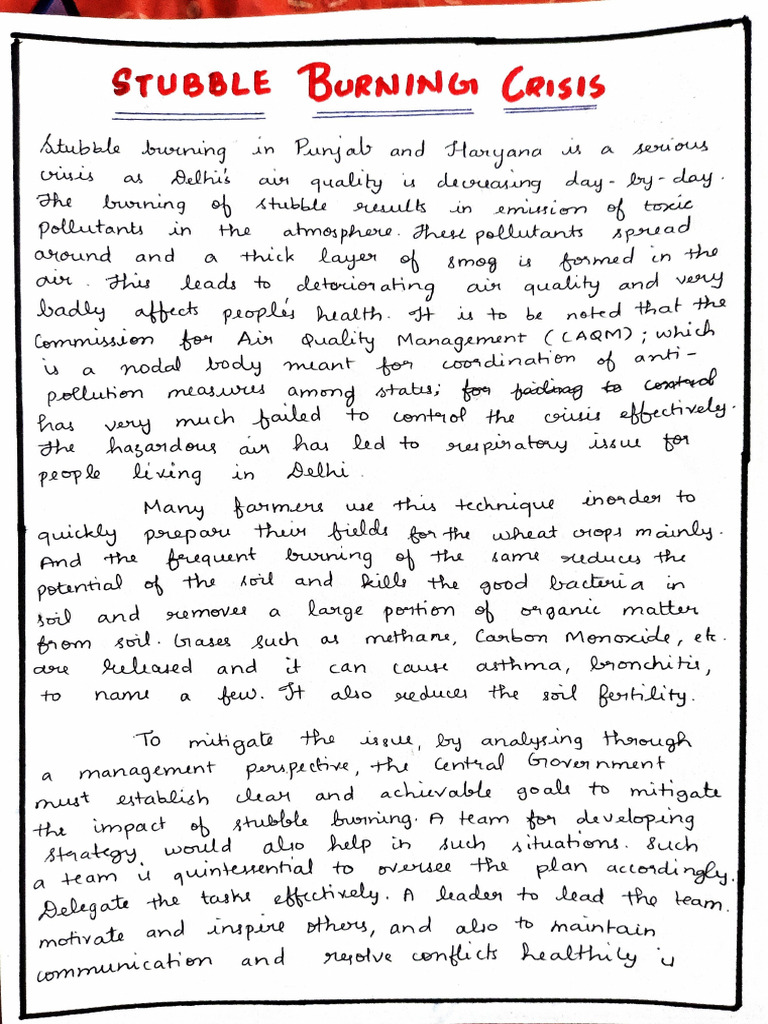 STUBBLE BURNING CRISIS
Stubble burning in Punjab and Haryana is a serious
crisis as Delhi's air quality is decreasing day-by-day.
The burning of stubble results in emission of toxic
pollutants in the atmosphere. These pollutants spread
around and a thick layer of smog is formed in the
air. This leads to deteriorating air quality and very
badly affects people's health. It is to be noted that the
Commission for Air Quality Management (CAQM); which
is a nodal body meant for coordination of anti-
pollution measures among states; for failing to control
has very much failed to control the crisis effectively.
The hazardous air has led to respiratory issue for
people living in Delhi.
Many farmers use this technique inorder to
quickly prepare their fields for the wheat crops mainly.
And the frequent burning of the same reduces the
potential of the soil and kills the good bacteria in
soil and removes a large portion of organic matter
from soil. Gases such as methane, Carbon Monoxide, etc.
are released and it can cause asthma, bronchitis,
to name a few. It also reduces the soil fertility.
To mitigate the issue, by analysing through
a management perspective, the Central Government
must establish clear and achievable goals to mitigate
the impact of stubble burning. A team for developing
strategy would also help in such situations. Such
a team is quintessential to oversee the plan accordingly.
Delegate the tasks effectively. A leader to lead the team.
motivate and inspire others, and also to maintain
communication and resolve conflicts healthily is